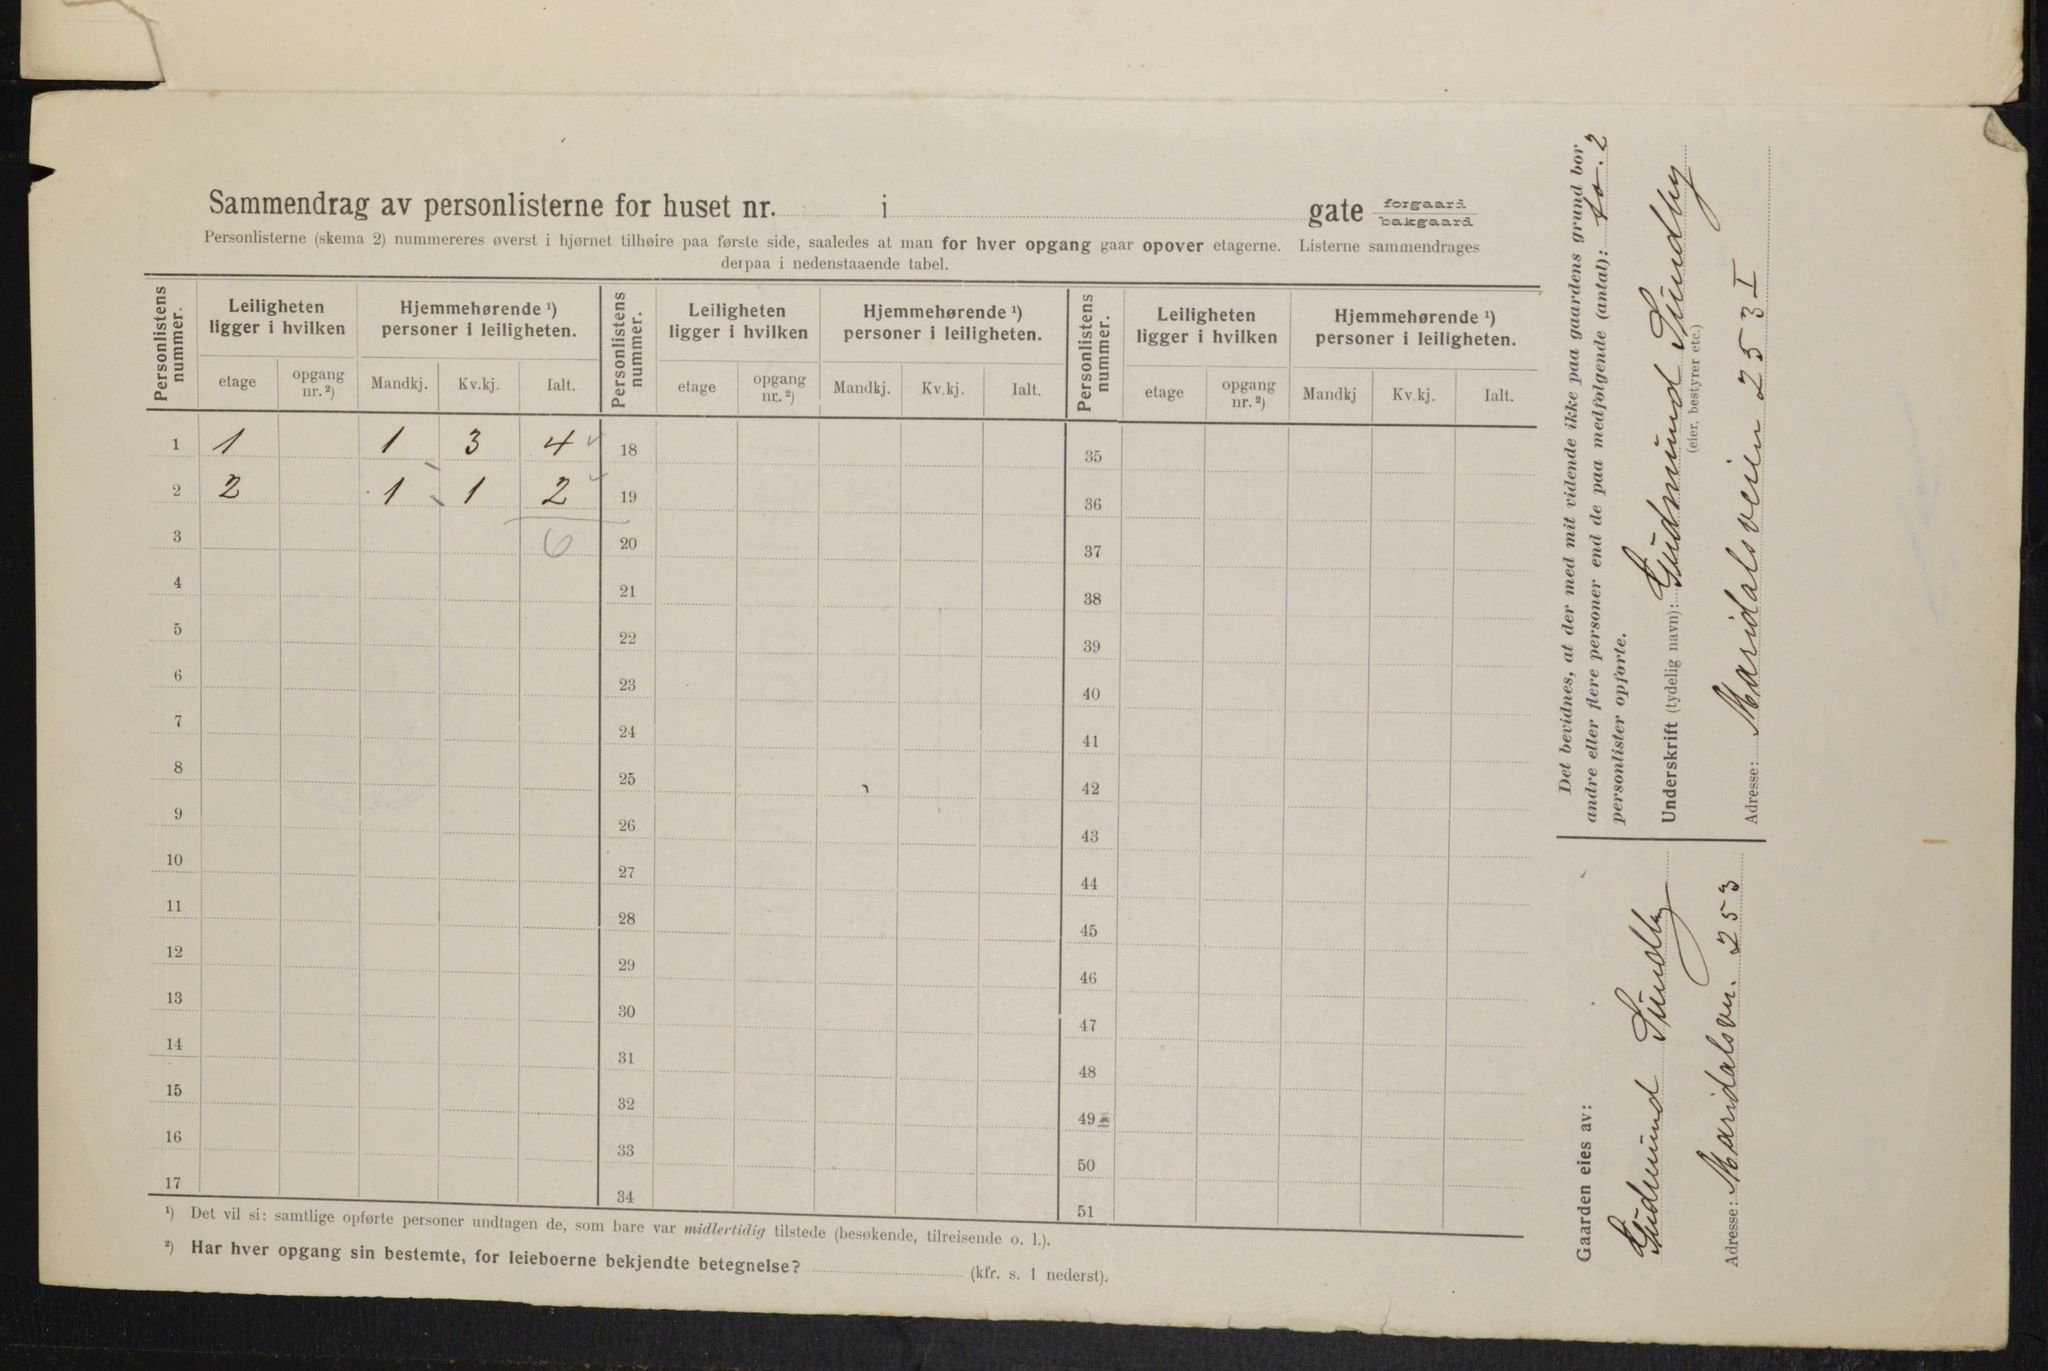 Sammendrag av personlisterne for huset nr. i gate forgaard bakgaard
Personlisterne (skema 2) nummereres øverst i hjørnet tilhøire paa første side, saaledes at man for hver opgang gaar opover etagerne. Listerne sammendrages
derpaa i nedenstaaende tabel.
Personlistens nummer. Leiligheten ligger i hvilken Hjemmehørende ¹) personer i leiligheten. Personlistens nummer. Leiligheten ligger i hvilken Hjemmehørende ¹) personer i leiligheten. Personlistens nummer. Leiligheten ligger i hvilken Hjemmehørende ¹) personer i leiligheten.
etage opgang nr. ²) Mandkj. Kv.kj. Ialt. etage opgang nr. ²) Mandkj. Kv.kj. Ialt. etage opgang nr. ²) Mandkj Kv.kj. Ialt.
1 1 1 3 4 18 35
2 2 1 1 2 19 36
3 6 20 37
4 21 38
5 22 39
6 23 40
7 24 41
8 25 42
9 26 43
10 27 44
11 28 45
12 29 46
13 30 47
14 31 48
15 32 49
16 33 50
17 34 51
¹) Det vil si: samtlige opførte personer undtagen de, som bare var midlertidig tilstede (besøkende, tilreisende o. l.).
²) Har hver opgang sin bestemte, for leieboerne bekjendte betegnelse? (kfr. s. 1 nederst).
Det bevidnes, at der med mit vidende ikke paa gaardens grund bor
andre eller flere personer end de paa medfølgende (antal): to. 2
personlister opførte.
Underskrift (tydelig navn): Gudmund Sundby
(eier, bestyrer etc.)
Adresse: Maridalsveien 253 I
Gaarden eies av:
Gudmund Sundby
Adresse: Maridalsvn. 253